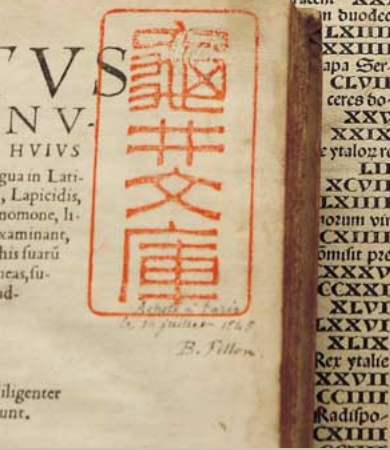 TVS
NV-
HVIVS
gua in Lati-
, Lapicidis,
nomone, li-
xaminant,
his suarū
neas, su-
ad-
iligenter
unt.
龜井文庫
Acheté à Paris
le 10 juillet
B. Fillon.
n duodec
LXIIII
XXIIII
apa Ser-
CLVII
ceres bo-
XXV
XXIX
e ytaloꝝ re
LII
XCVII
LXIIII
CXIIII
omisit pre
XXXV
CCXXI
XLVI
LXXVI
XLIX
Rex ytalie
XXVII
CCIIII
Radispo-
CXIIII